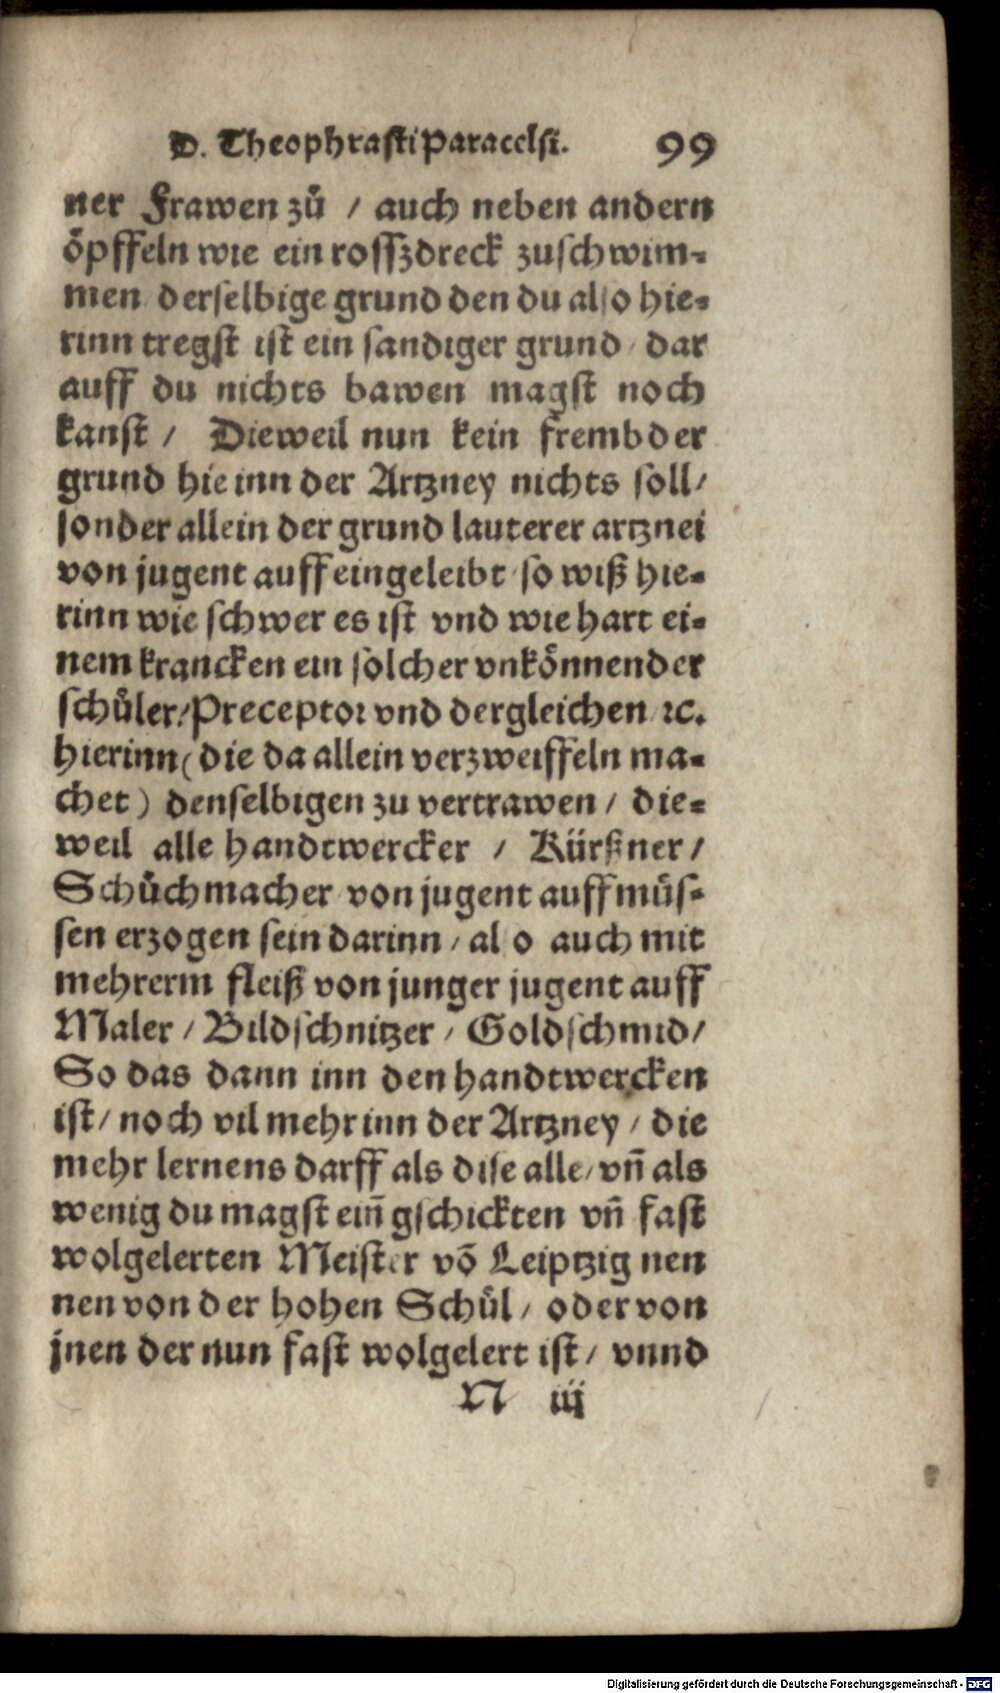 D. Theophrasti Paracelsi. 99
ner Frawen zů / auch neben andern
öpffeln wie ein rosszdreck zuschwim-
men derselbige grund den du also hie-
rinn tregst ist ein sandiger grund / dar
auff du nichts bawen magst noch
kanst / Dieweil nun kein frembder
grund hie inn der Artzney nichts soll /
sonder allein der grund lauterer artznei
von jugent auff eingeleibt / so wiß hie-
rinn wie schwer es ist vnd wie hart ei-
nem krancken ein solcher vnkönnender
schůler / Preceptor vnd dergleichen ꝛc.
hierinn (die da allein verzweiffeln ma-
chet) denselbigen zu vertrawen / die-
weil alle handtwercker / Kürßner /
Schůchmacher von jugent auff müs-
sen erzogen sein darinn / al o auch mit
mehrerm fleiß von junger jugent auff
Maler / Bildschnitzer / Goldschmid /
So das dann inn den handtwercken
ist / noch vil mehr inn der Artzney / die
mehr lernens darff als dise alle / vn̄ als
wenig du magst ein̄ gschickten vn̄ fast
wolgelerten Meister vō Leiptzig nen
nen von der hohen Schůl / oder von
jnen der nun fast wolgelert ist / vnnd
N iij
Digitalisierung gefördert durch die Deutsche Forschungsgemeinschaft - DFG